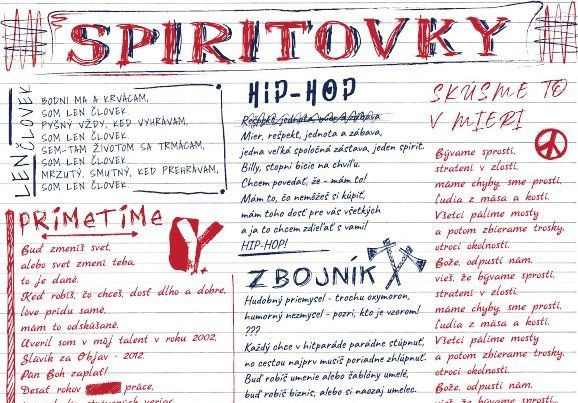 SPIRITOVKY
LEN ČLOVEK
BODNI MA A KRVÁCAM,
SOM LEN ČLOVEK.
PYŠNÝ VŽDY, KEĎ VYHRÁVAM,
SOM LEN ČLOVEK.
SEM-TAM ŽIVOTOM SA TRMÁCAM,
SOM LEN ČLOVEK.
MRZUTÝ, SMUTNÝ, KEĎ PREHRÁVAM,
SOM LEN ČLOVEK.
PRIMETIME
Buď zmeníš svet,
alebo svet zmení teba,
to je dané.
Keď robíš, čo chceš, dosť dlho a dobre,
love prídu samé,
mám to odskúšané.
Uveril som v môj talent v roku 2002,
Slávik za Objav - 2012.
Pán Boh zaplať!
Desať rokov práce,
HIP-HOP
Rešpekt, jednota, mier a zábava
Mier, rešpekt, jednota a zábava,
jedna veľká spoločná zástava, jeden spirit.
Billy, stopni bicie na chvíľu.
Chcem povedať, že - mám to!
Mám to, čo nemôžeš si kúpiť,
mám toho dosť pre vás všetkých
a ja to chcem zdieľať s vami!
HIP-HOP!
ZBOJNÍK
Hudobný priemysel - trochu oxymoron,
humorný nezmysel - pozri, kto je vzorom!
???
Každý chce v hitparáde parádne stúpnuť,
no cestou najprv musíš poriadne zhlúpnuť.
Buď robíš umenie alebo šablóny umelé,
buď robíš biznis, alebo si naozaj umelec.
SKÚSME TO
V MIERI
Bývame sprostí,
stratení v zlosti,
máme chyby, sme prostí,
ľudia z mäsa a kostí.
Všetci pálime mosty
a potom zbierame trosky,
otroci okolností.
Bože, odpusti nám,
vieš, že bývame sprostí,
stratení v zlosti,
máme chyby, sme prostí,
ľudia z mäsa a kostí.
Všetci pálime mosty
a potom zbierame trosky,
otroci okolností.
Bože, odpusti nám,
vieš, že bývame sprostí,